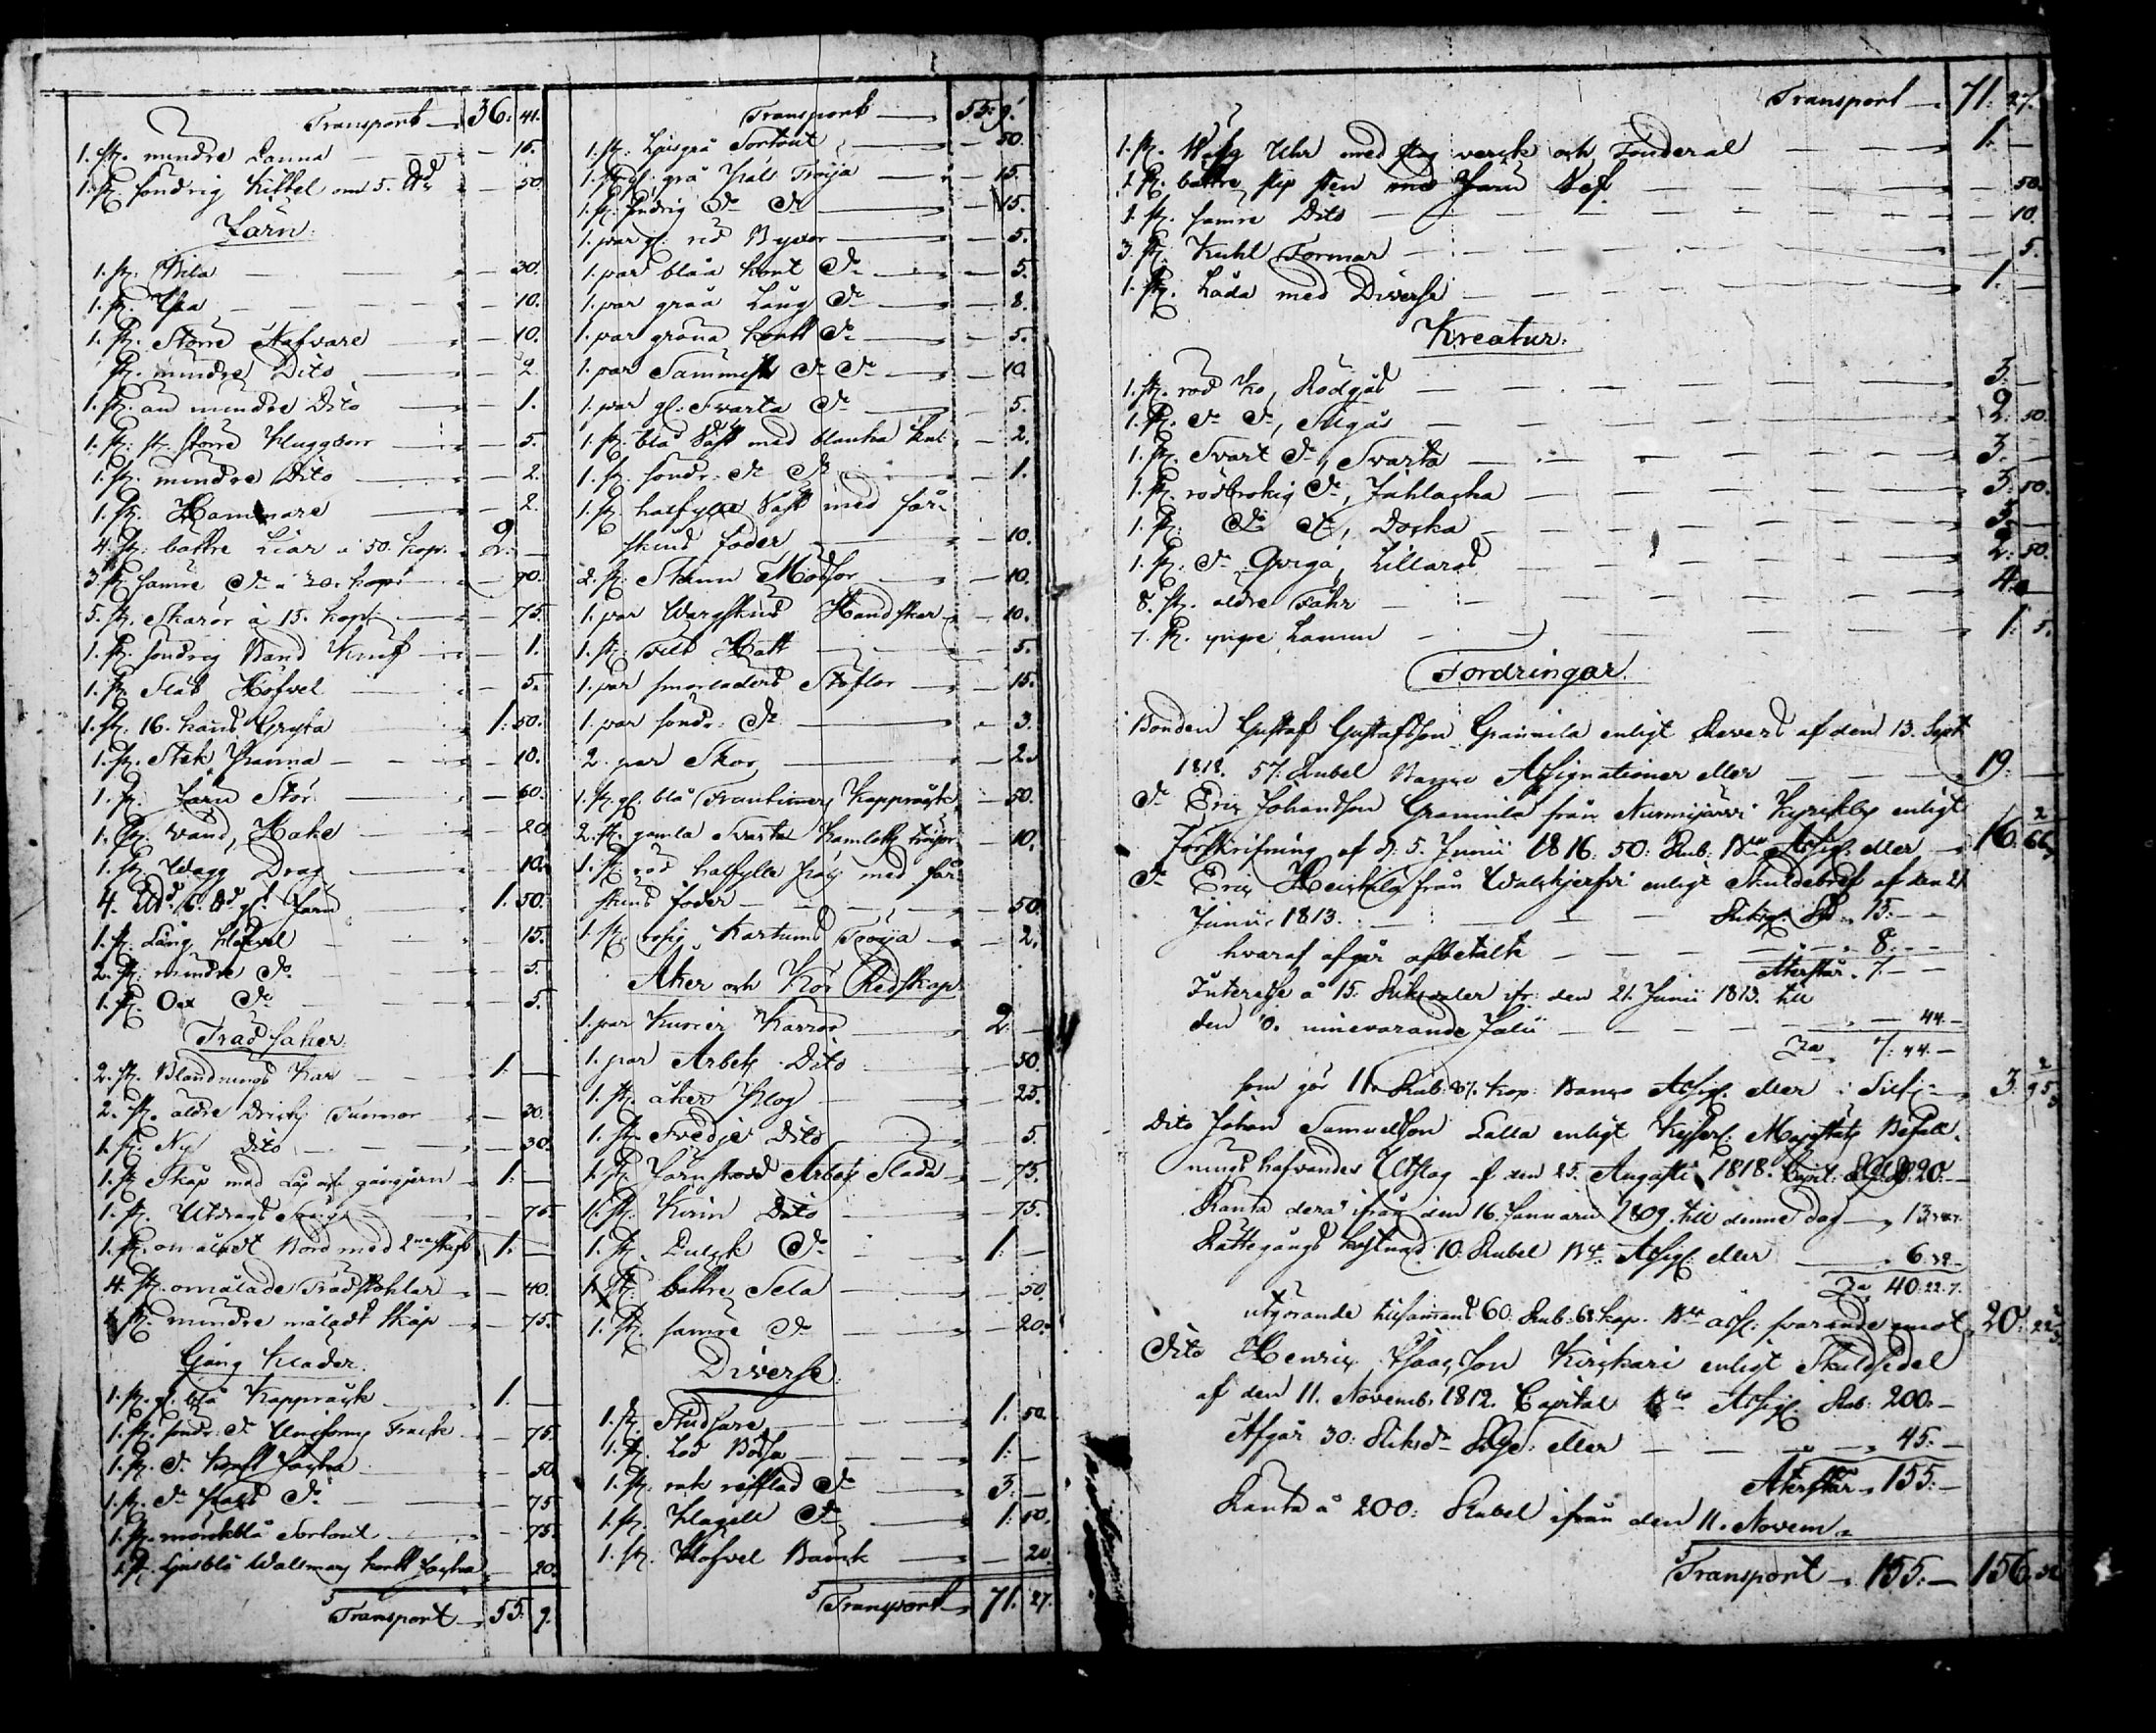 Transport 36: 41.
1. st. mindre Panna 15.
1. st. söndrig Kittel om 5. ℔ 50.
Järn:
1. st. Bila 30.
1. st. Yxa 10.
1. st. Större Nafvare 10.
st. mindre Dito 2.
1. st. än mindre Dito 1.
1. st. större Huggborr 5.
1. st. mindre Dito 2.
1. st. Hammare 2.
4. st. bättre Liar a 50. kop. 2. —
3. st. sämre Do a 30. kop. 90.
5. st. Skäror à 15. kop. 75.
1. st. söndrig Band Knif 1.
1. st. Slät Höfvel 5.
1. st. 16. kans Gryta 1: 50.
1. st. Stek Panna 10.
1. st. Järn Stör 60.
1. st. Wänd Hake 20.
1. st. Wagg Drag 10.
4. L℔ 6. ℔ gl. Järn 1: 50.
1. st. Lång Höfvel 15.
2. st. mindre Do 5.
1. st. Oax Do 5.
Träd saker
2. st. Blandnings Kar 1: —
2. st. äldre Dricks Tunnor 30.
1. st. Ny Dito 30.
1. st. Skåp med Lås och gångjern 1: —
1. st. Utdrags Säng 75.
1. st. omåladt Bord med 1: —
4. st. omålade Trädstohlar 40.
1. st. mindre måladt Skåp 75.
Gång kläder.
1. st. gl. blå Kapprack 1: —
1. st. söndr. Do Uniforms Frack 75.
1. st. Do kort Jacka 50.
1. st. Do Do 75.
1. st. mörkblå Sortout 75.
1. st. Ljusblå Wallmans kort Jacka 20.
Transport 55: 9.
Transport 55: 9.
1. st. Ljusgrå Sortout 50.
1. st. gl. grå Päls Tröija 15.
1. st. söndrig Do Do 15.
1. par gl. röd Byxor 5.
1. par blåa kort Do 5.
1. par gråa Lång Do 8.
1. par gröna kort Do 5.
1. par Sammets Do Do 10.
1. par gl: Svarta Do 5.
1. st. blå Väst med blanka kn: 2.
1. st. söndr: Do Do 1.
1. st. halfylle Väst med får-
skind foder 10.
2. st. Skinn Mössor 10.
1. par Wargskins Handskar 10.
1. st. Filt Hatt 5.
1. par smorläders Stöflor 15.
1. par söndr: Do 3.
2. par Skor 2.
1. st. gl. blå Kapprack 50.
2. st. gamla Svarta Kamlotts tröijor 10.
1. st. röd halfylle Päls med får-
skins foder 50.
1. st. Kartuns Tröija 2.
Åker och Kör Redskap
1. par Kärror 2: —
1. par Arbets Dito 50.
1. st. åker Plog 25.
1. st. Svedje Dito 5.
1. st. Järnskodd Arbets Släda 75.
1. st. Dito 75.
1. st. Do 1: —
1. st. bättre Sela 50.
1. st. sämre Do 20.
Diverse.
1. st. Studsare 1: 50.
1. st. Lod Bössa 1: —
1. st. rak räfflad Do 3: —
1. st. Hagell Do 1: 50.
1. st. Höfvel Bänk 20.
Transport 71: 27.
Transport 71: 27.
1. st. Wägg Uhr med slag verck och Fouderal 1: —
1. st. bättre slip sten med Jern 50.
1. st. sämre Dito 10.
3. st. Kuhl Formar 5.
1. st. Låda med Diverse 1. —
Kreatur.
1. st. röd Ko, Rödgås 3: —
1. st. Do Do, 2: 50.
1. st. Svart Do, Svarta 3. —
1. st. rödbrokig Do, 3: 50.
1. st. Do Do, Docka 3: —
1. st. Do Qviga, Lillaros 2: 50.
8. st. äldre Fåhr 4: —
7. st. yngre Lamm 1: 5.
Fordringar.
Bonden Gustaf Gustafsson Grannila enligt Revers af den 13. Sept
1818. 57. Rubel Banco Assignationer eller 19: —
Do Eric Johansson Grannila från Nurmijärvi Kyrckby enligt
Förskrifning af d. 5. Junii 1816. 50: Rub: Bco Assig. eller 16: 66
Do Eric Heickilä från enligt Skuldebref af den 21
Junii 1813. 15. —
hvaraf afgår afbetalt 8: —
återstår 7. —
Interesse å 15. Riksdaler ifr: den 21. Junii 1813. till
den 10. innevarande Julii 44. —
Sa 7: 44. —
som gör 11. Rub: 87. kop: Banco Assig. eller Silf: 3: 95
Dito Johan Samuelsson Lalla enligt Keyserl. Majestäts Befall-
ningshafvandes Utslag af den 25. Augusti 1818. Capit: 20. —
Ränta derå ifrån den 16. Januarii 1809. till denne dag 13:
Rättegångs kostnad 10. Rubel Bco Assig. eller 6: 32. —
Sa 40: 22. 7.
utgörande tillsammans 60. Rub: 68 kop. Bco ass: svarande emot 20: 22
Dito Henric Isaacsson Kirckari enligt Skuldsedel
af den 11. Novemb. 1812. Capital Bco Assig. Rub: 200. —
Afgår 30: Riksdr eller 45: —
Återstår 155: —
Ränta å 200: Rubel ifrån den 11. Novem-
Transport 155. — 156: